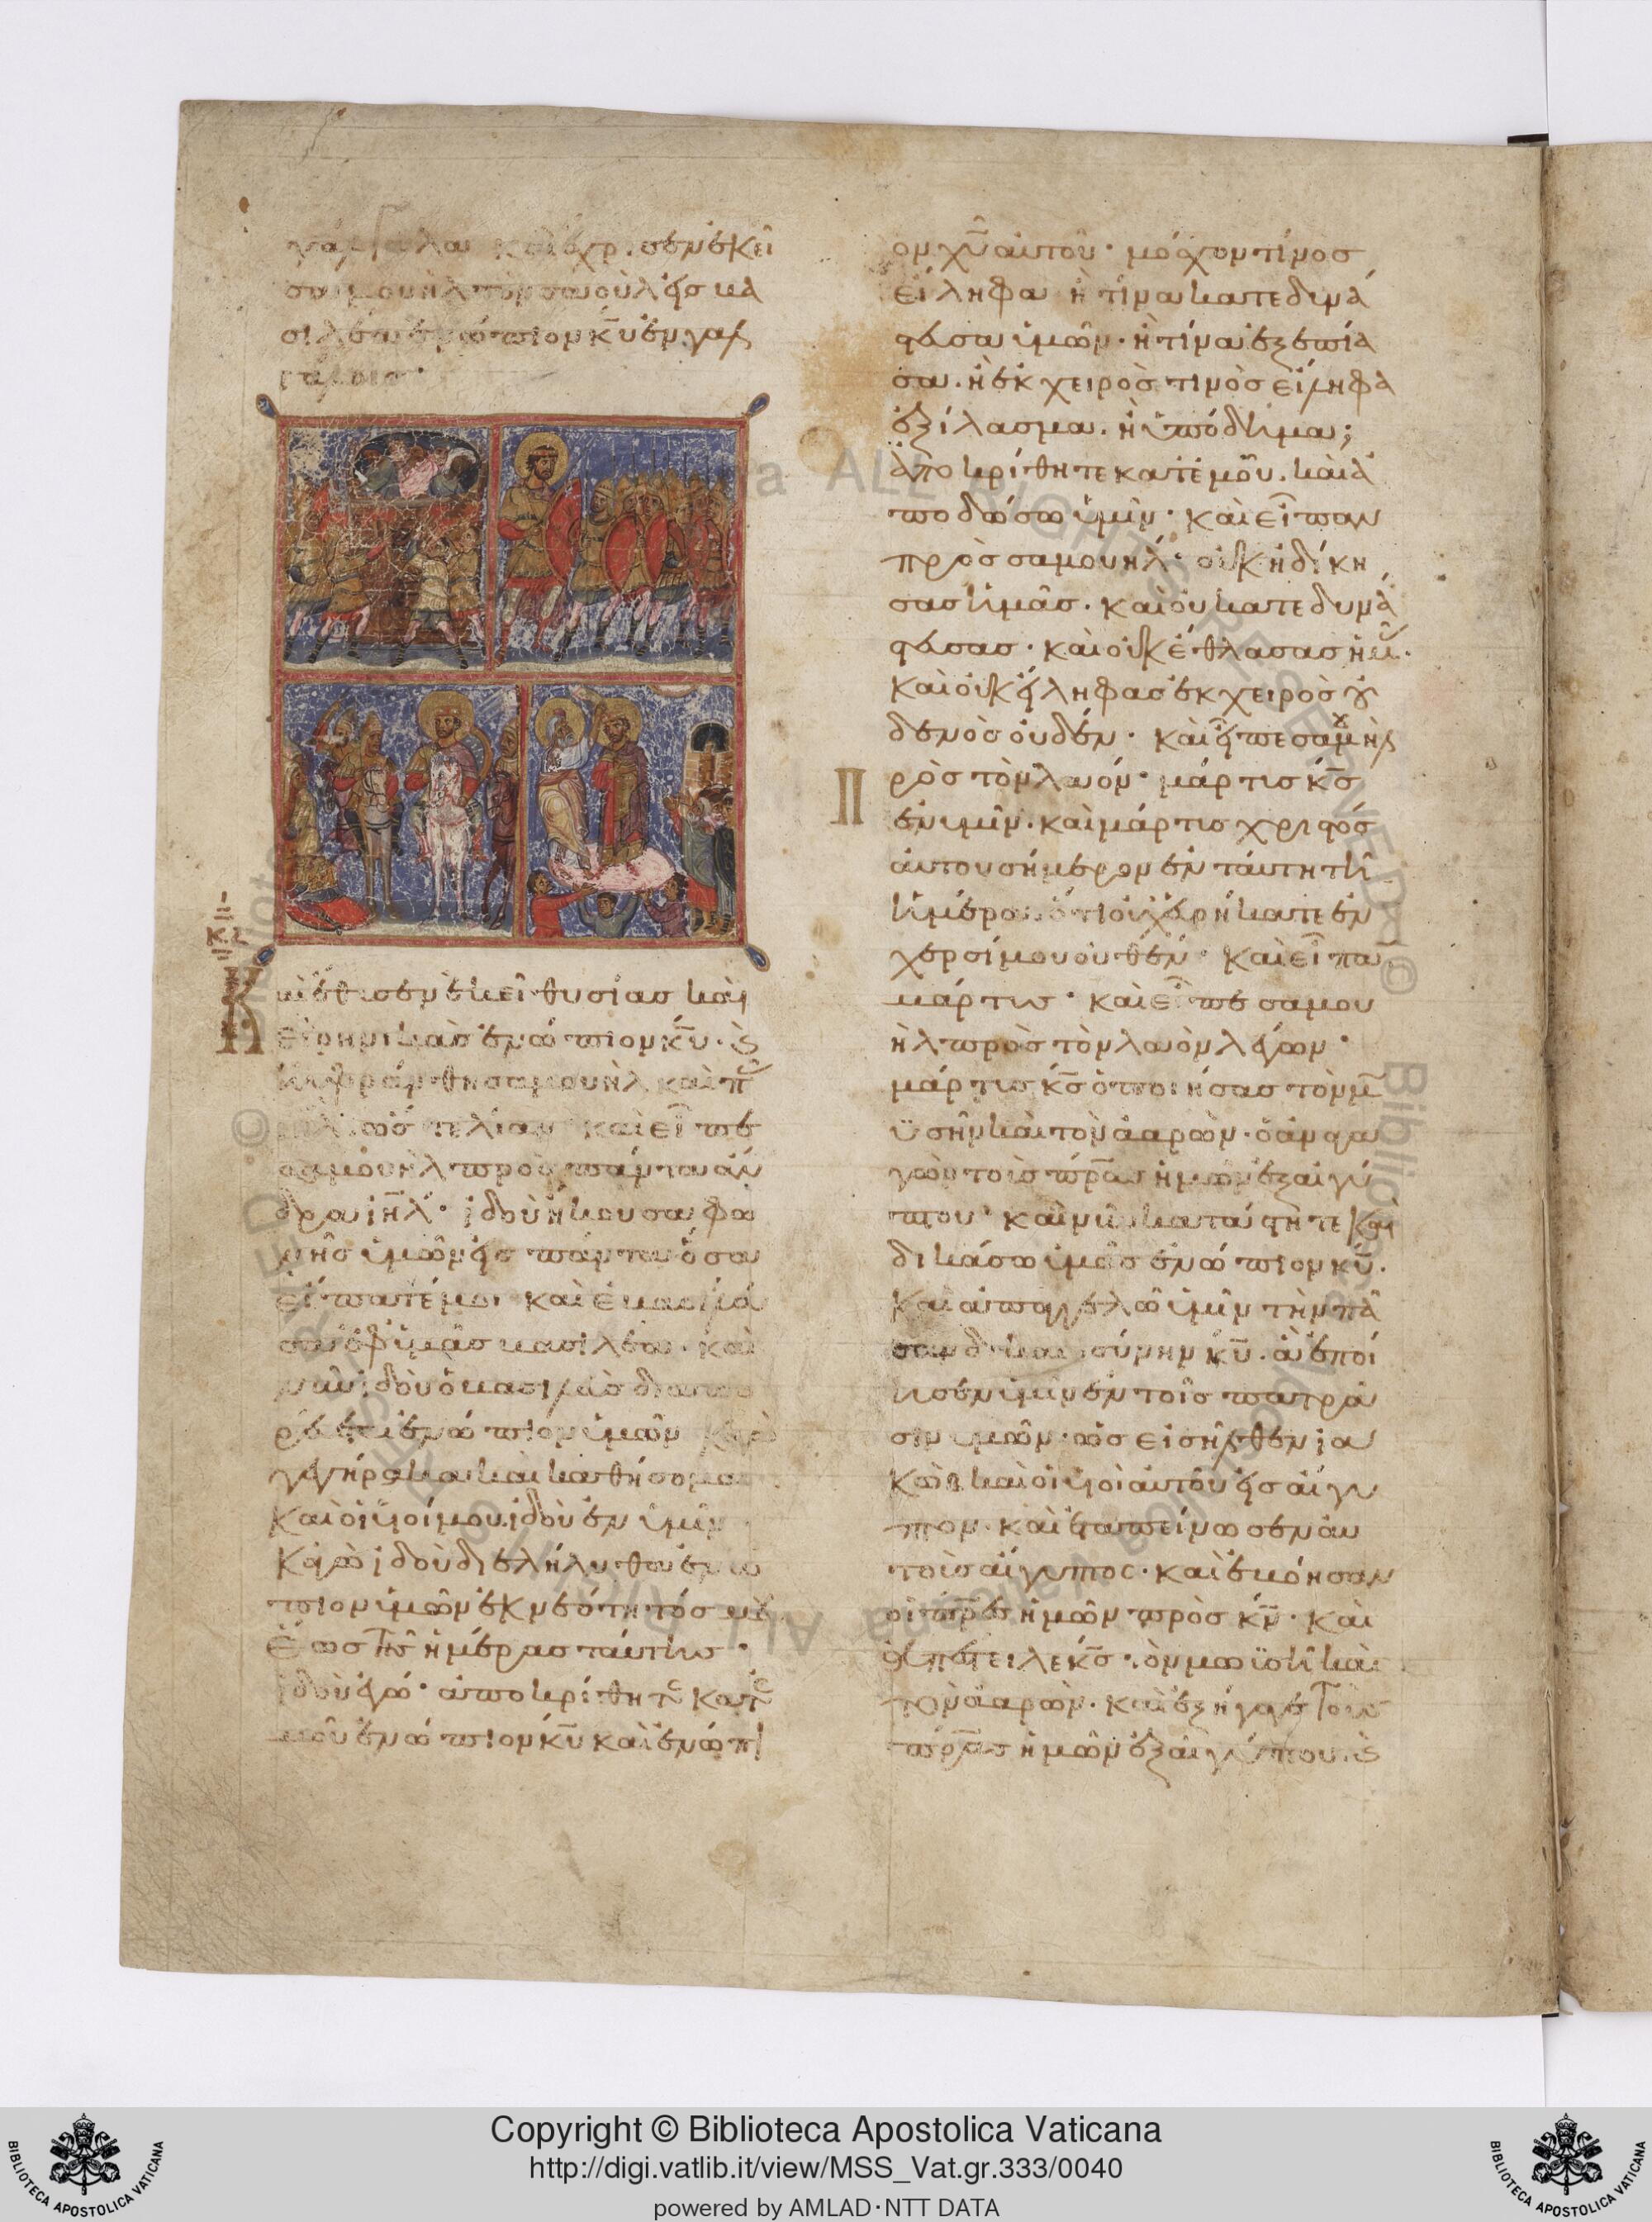 γάλγαλα καὶ ἔχρισεν ἐκεῖ
σαμουὴλ τὸν σαοὺλ εἰς βα
σιλέα ἐνώπιον κ̅υ̅ ἐν γαλ
γάλοις·
Καὶ ἔθυσεν ἐκεῖ θυσίας καὶ
εἰρηνικὰς ἐνώπιον κ̅υ̅· καὶ
ηὐφράνθη σαμουὴλ καὶ π
ὥστε λίαν καὶ εἶπε
σαμουὴλ πρὸς πάντα ἄν
δρα ι̅η̅λ̅· ἰδοὺ ἤκουσα φω
νῆς ὑμῶν εἰς πάντα ὅσα
εἴπατέ μοι καὶ ἐβασίλευ
σα ἐφ ὑμᾶς βασιλέα· καὶ
νῦν ἰδοὺ ὁ βασιλεὺς διαπο
ρεύεται ἐνώπιον ὑμῶν κἀγὼ
γεγήρακα καὶ καθήσομαι
καὶ οἱ υἱοί μου ἰδοὺ ἐν ὑμῖν
κἀγὼ ἰδοὺ διελήλυθα ἐνώ
πιον ὑμῶν ἐκ νεότητός μου
ἕως τῆς ἡμέρας ταύτης·
ἰδοὺ ἐγώ· ἀποκρίθητε κατ ἐ
μοῦ ἐνώπιον κ̅υ̅ καὶ ἐνώπι
ον χ̅υ̅ αὐτοῦ· μόσχον τίνος
εἴληφα ἢ τίνα κατεδυνά
στευσα ὑμῶν· ἢ τίνα ἐξεπία
σα· ἢ ἐκ χειρὸς τινὸς εἴληφα
ἐξίλασμα· ἢ ὑπόδημα;
ἀποκρίθητε κατ ἐμοῦ· καὶ ἀ
ποδώσω ὑμῖν· καὶ εἶπαν
πρὸς σαμουήλ· οὐκ ἠδίκη
σας ἡμᾶς· καὶ οὐ κατεδυνά
στευσας· καὶ οὐκ ἔθλασας ἡμᾶς·
καὶ οὐκ εἴληφας ἐκ χειρὸς οὐ
δενὸς οὐδέν· καὶ εἶπε σαμουὴλ
Πρὸς τὸν λαόν· μάρτις κ̅ς̅
ἐν ὑμῖν· καὶ μάρτις χριστός
αὐτοῦ σήμερον ἐν ταύτη τῆ
ἡμέρα ὅτι οὐχ εὑρήκατε ἐν
χερσί μου οὐθέν· καὶ εἶπαν
μάρτις· καὶ εἶπε σαμου
ὴλ πρὸς τὸν λαὸν λέγων·
μάρτις κ̅ς̅ ὁ ποιήσας τὸν μω
ϋσῆν καὶ τὸν ἀαρών· ὁ ἀναγα
γὼν τοὺς π̅ρ̅α̅ς ἡμῶν ἐξ αἰγύ
πτου· καὶ νῦν κατάστητε καὶ
δικάσω ὑμᾶς ἐνώπιον κ̅υ̅·
καὶ ἀπαγγελῶ ὑμῖν τὴν πᾶ
σαν δικαιοσύνην κ̅υ̅· ἃ ἐποί
ησεν ὑμῖν ἐν τοῖς πατρά
σιν ὑμῶν· ὡς εἰσῆλθεν ἰα
κὼβ καὶ οἱ υἱοὶ αὐτοῦ εἰς αἴγυ
πτον· καὶ ἐταπείνωσεν αὐ
τοὺς αἴγυπτος· καὶ ἐβόησαν
οἱ π̅ρ̅ε̅ς ἡμῶν πρὸς κ̅ν̅· καὶ
ἐξαπέστειλε κ̅ς̅ τὸν μωϋσῆ καὶ
τὸν ἀαρών· καὶ ἐξήγαγε τοὺς
π̅ρ̅α̅ς ἡμῶν ἐξ αἰγύπτου· καὶ
Copyright © Biblioteca Apostolica Vaticana
http://digi.vatlib.it/view/MSS_Vat.gr.333/0040
powered by AMLAD·NTT DATA
BIBLIOTECA APOSTOLICA VATICANA
BIBLIOTECA APOSTOLICA VATICANA